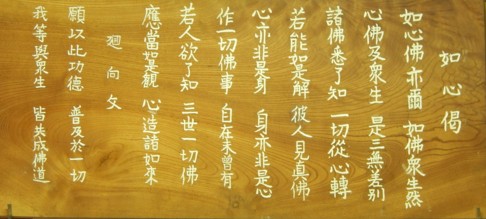 如心偈
如心佛亦爾 如佛衆生然
心佛及衆生 是三無差別
諸佛悉了知 一切從心轉
若能如是解 彼人見真佛
心亦非是身 身亦非是心
作一切佛事 自在未曾有
若人欲了知 三世一切佛
應當如是觀 心造諸如來
廻向文
願以此功德 普及於一切
我等與衆生 皆共成佛道